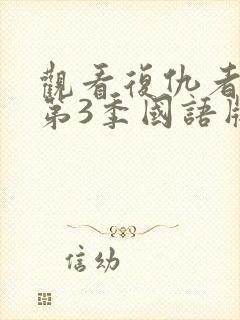 觀看復仇者
第3季國語
信幼